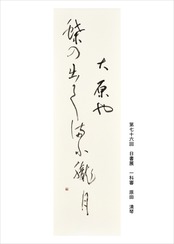 大原や
蝶の出て舞ふ朧月
第七十六回 日書展 一科審 原田 清琴